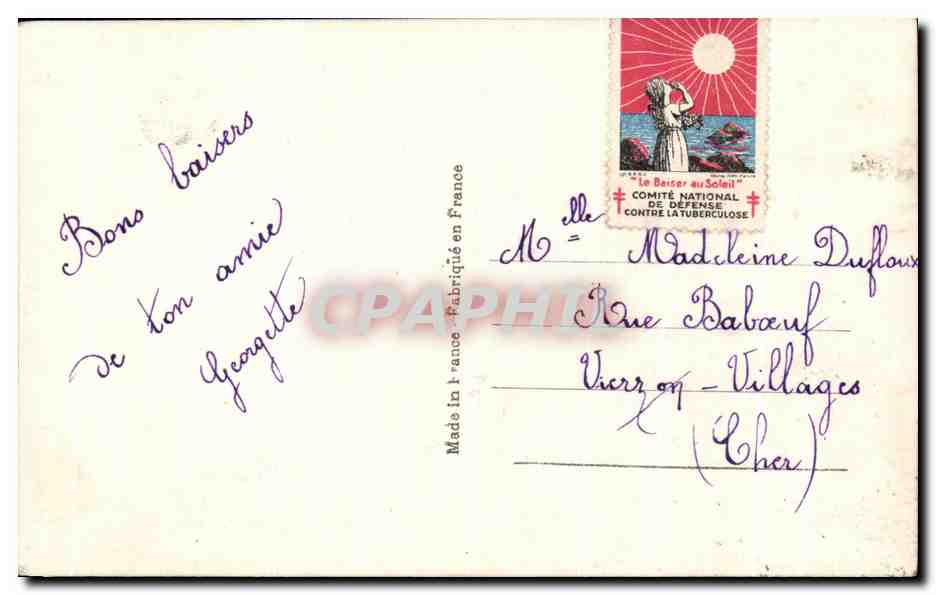 Bons baisers
de ton amie
Georgette
Made in France - Fabriqué en France
"Le Baiser au Soleil"
COMITÉ NATIONAL
DE DÉFENSE
CONTRE LA TUBERCULOSE
Melle Madeleine Dufloux
Rue Babœuf
Vierzon - Villages
(Cher)
CPAPHIL